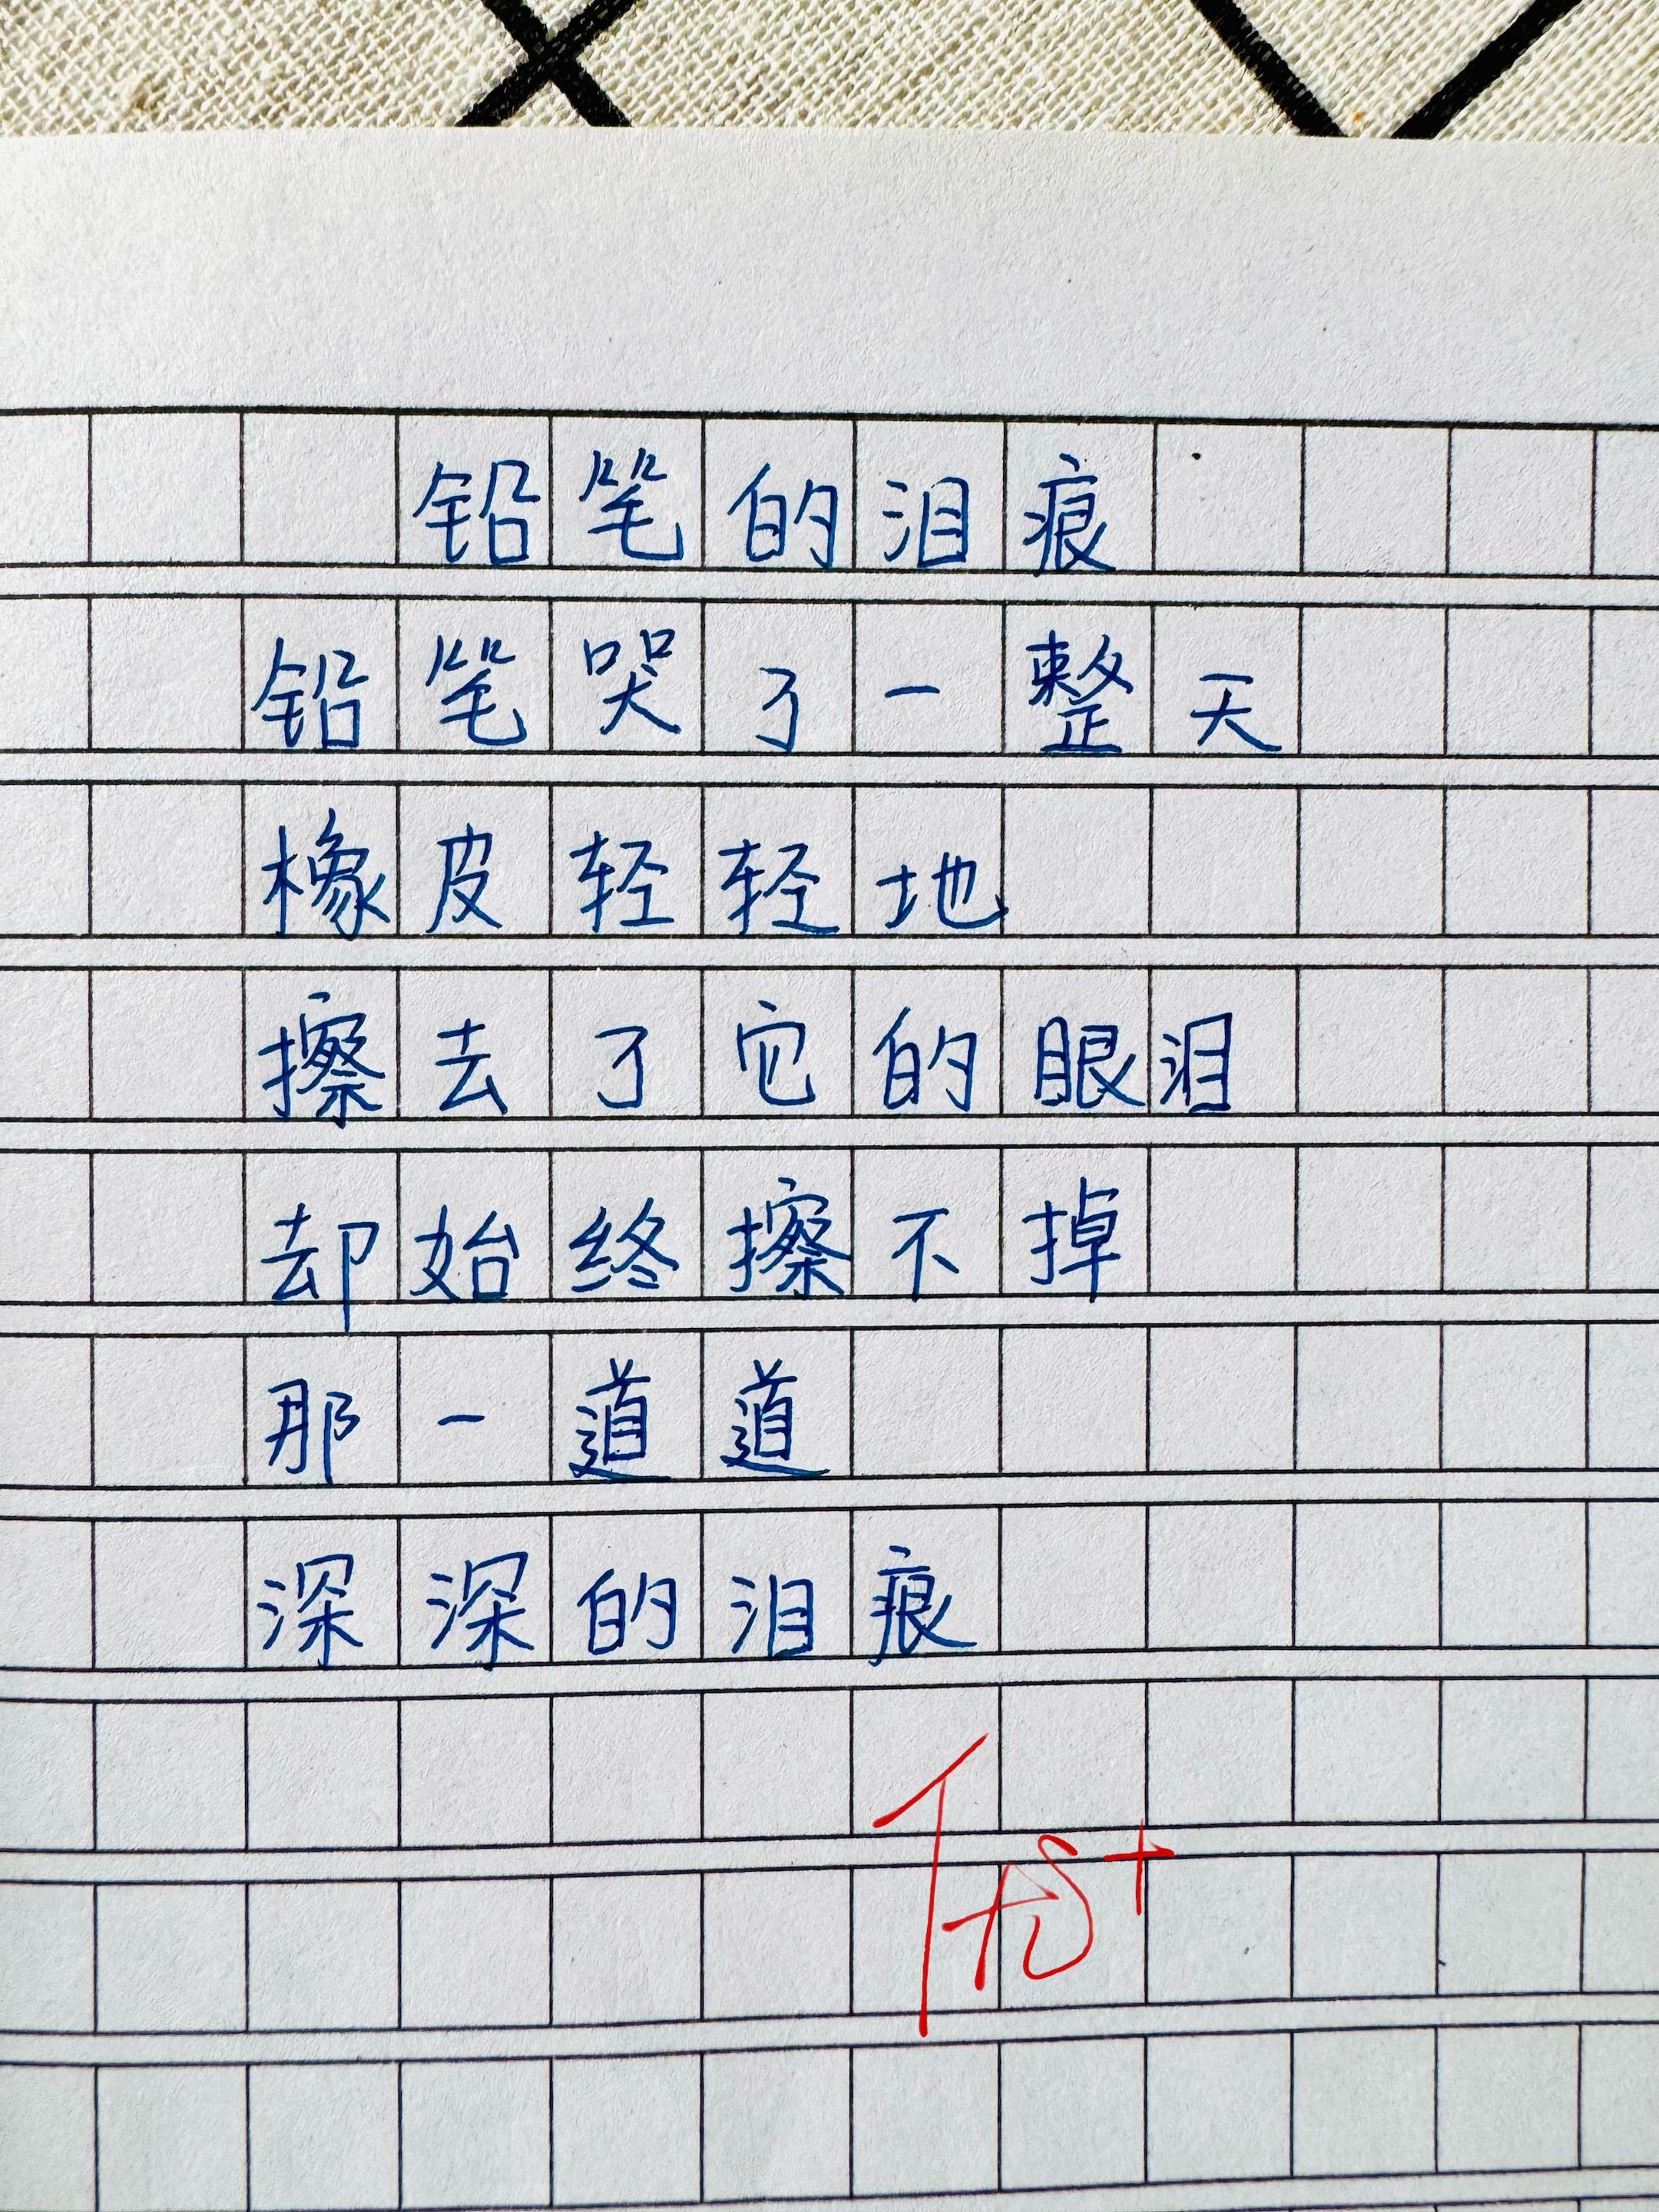 铅笔的泪痕
铅笔哭了一整天
橡皮轻轻地
擦去了它的眼泪
却始终擦不掉
那一道道
深深的泪痕
优+